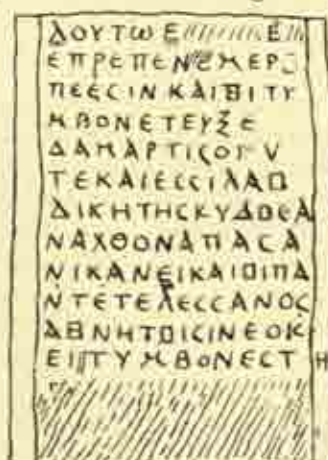 ΔΟΥΤΩΕ Ε
ΕΠΡΕΠΕΝ ΜΕΡ
ΠΕΕϹΙΝΚΑΙ ΙΤΥ
ΜΒΟΝΕΤΕΥΞΕ
ΔΑΜΑΡΤΙϹΟΓΥ
ΤΕΚΑΙΕϹϹΙΛΑΩ
ΔΙΚΗΤΗϹΚΥΔΟΕΑ
ΝΑΧΘΟΝΑΠΑϹΑ
ΝΙΚΑΝΕΙΚΑΙΩΙΠΑ
ΝΤΕΤΕΛΕϹϹΑΝΟϹ
ΑΒΝΗΤΩΙϹΙΝΕΟΚ
ΕΙ ΤΥΜΒΟΝΕϹΤΗ